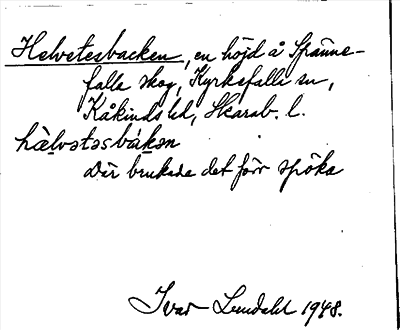 Helvetesbacken, en höjd å Spänne-
falla skog, Kyrkefalla sn,
Kåkinds hd, Skarab. l.
hàlvətəsbákən
Där brukade det förr spöka
Ivar Lundahl 1948.